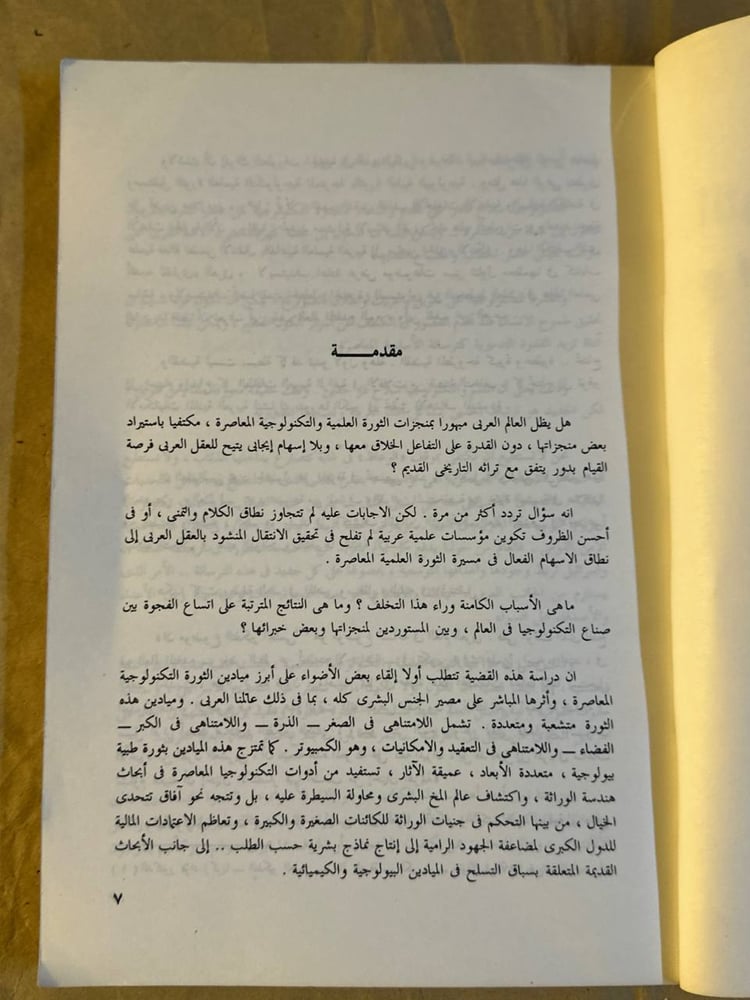 مقدمـــــة
هل يظل العالم العربى مبهورا بمنجزات الثورة العلمية والتكنولوجية المعاصرة ، مكتفيا باستيراد
بعض منجزاتها ، دون القدرة على التفاعل الخلاق معها ، وبلا إسهام إيجابى يتيح للعقل العربى فرصة
القيام بدور يتفق مع تراثه التاريخى القديم ؟
انه سؤال تردد أكثر من مرة . لكن الاجابات عليه لم تتجاوز نطاق الكلام والتمنى ، أو فى
أحسن الظروف تكوين مؤسسات علمية عربية لم تفلح فى تحقيق الانتقال المنشود بالعقل العربى إلى
نطاق الاسهام الفعال فى مسيرة الثورة العلمية المعاصرة .
ماهى الأسباب الكامنة وراء هذا التخلف ؟ وما هى النتائج المترتبة على اتساع الفجوة بين
صناع التكنولوجيا فى العالم ، وبين المستوردين لمنجزاتها وبعض خبرائها ؟
ان دراسة هذه القضية تتطلب أولا إلقاء بعض الأضواء على أبرز ميادين الثورة التكنولوجية
المعاصرة ، وأثرها المباشر على مصير الجنس البشرى كله ، بما فى ذلك عالمنا العربى . وميادين هذه
الثورة متشعبة ومتعددة . تشمل اللامتناهى فى الصغر ــ الذرة ــ واللامتناهى فى الكبر ــ
الفضاء ــ واللامتناهى فى التعقيد والامكانيات ، وهو الكمبيوتر . كما تمتزج هذه الميادين بثورة طبية
بيولوجية ، متعددة الأبعاد ، عميقة الآثار ، تستفيد من أدوات التكنولوجيا المعاصرة فى أبحاث
هندسة الوراثة ، واكتشاف عالم المخ البشرى ومحاولة السيطرة عليه ، بل وتتجه نحو آفاق تتحدى
الخيال ، من بينها التحكم فى جنيات الوراثة للكائنات الصغيرة والكبيرة ، وتعاظم الاعتمادات المالية
للدول الكبرى لمضاعفة الجهود الرامية إلى إنتاج نماذج بشرية حسب الطلب .. إلى جانب الأبحاث
القديمة المتعلقة بسباق التسلح فى الميادين البيولوجية والكيميائية .
٧